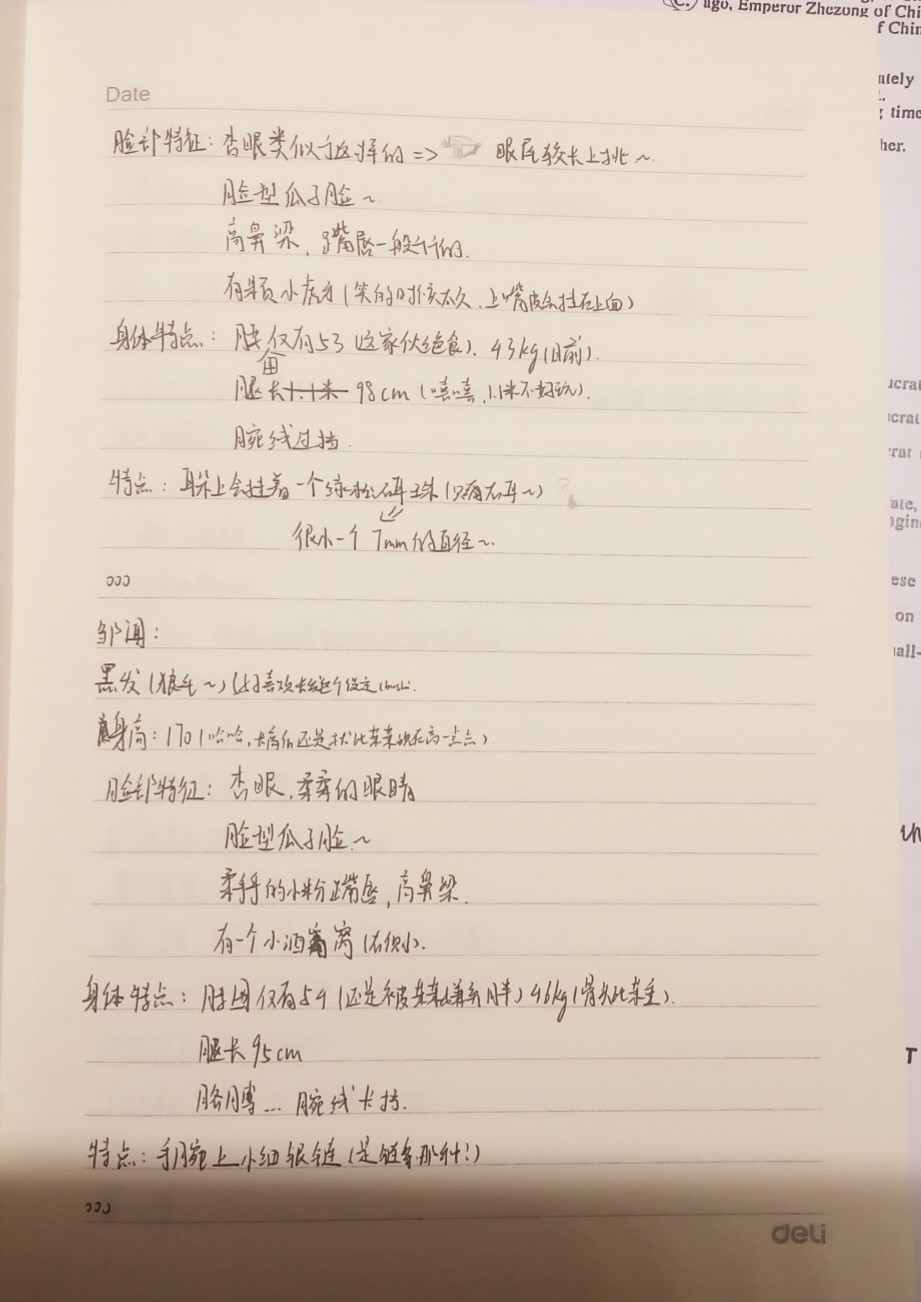 ago, Emperor Zhezong of Chi
f Chin
ately
time
her.
Date
脸部特征：杏眼类似于这样的 => 眼尾较长上挑~
脸型瓜子脸~
高鼻梁，嘴唇一般行的.
有颗小虎牙(笑的时候太久，上嘴皮会挂在上面)
身体特点：腰仅有53 这家伙绝食). 43kg(目前).
腿长1.1米 98cm (嘻嘻，1.1米不好玩).
腕线过裆.
特点：耳朵上会挂着一个绿松石耳珠(只有右耳~)
很小一个 7mm的直径~.
邹闻：
黑发(狼毛~)
身高：170(哈哈，
脸部特征：杏眼，柔柔的眼睛
脸型瓜子脸.~
柔乎乎的小粉嘴唇，高鼻梁.
有一个小酒窝(右侧).
身体特点：腰围仅有54(还是被某某嫌弃胖) 46kg(骨头比某重).
腿长95cm
胳膊... 腕线卡裆.
特点：手腕上小细银链(是链条那种！)
deli
ucrat
ucrat
crat
ate,
ngin
ese
on
all-
T